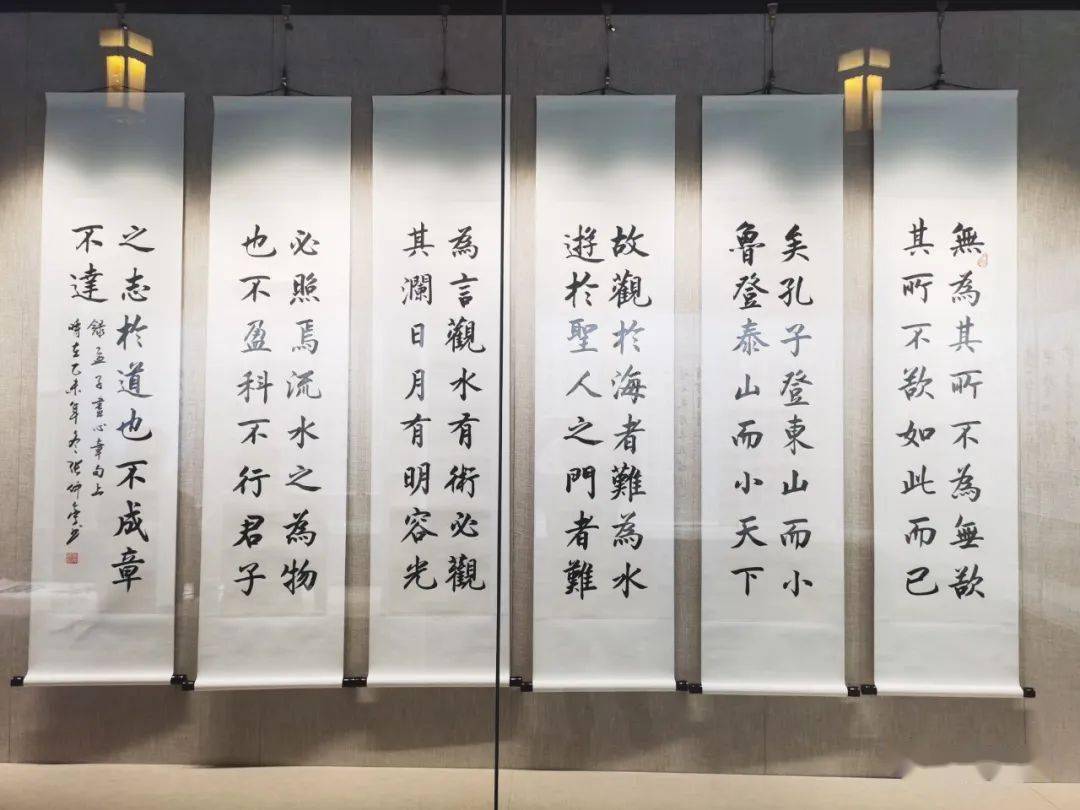 無為其所不為無欲
其所不欲如此而已
矣孔子登東山而小
魯登泰山而小天下
故觀於海者難為水
遊於聖人之門者難
為言觀水有術必觀
其瀾日月有明容光
必照焉流水之為物
也不盈科不行君子
之志於道也不成章
不達
錄孟子盡心章句上
時在乙未年冬張仲亭書